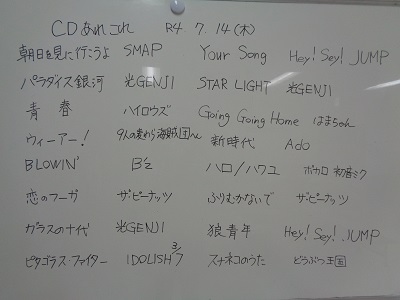 CDあれこれ R4.7.14(木)
朝日を見に行こうよ SMAP Your Song Hey! Sey! JUMP
パラダイス銀河 光GENJI STAR LIGHT 光GENJI
青春 ハイロウズ Going Going Home はまちゃん
ウィーアー! 9人の麦わら海賊団へん 新時代 Ado
BLOWIN' B'z ハロ/ハワユ ボカロ 初音ミク
恋のフーガ ザ・ピーナッツ ふりむかないで ザ・ピーナッツ
ガラスの十代 光GENJI 狼青年 Hey! Sey! JUMP
ピタゴラス・ファイター IDOLISH 3/7 スナネコのうた どうぶつ王国